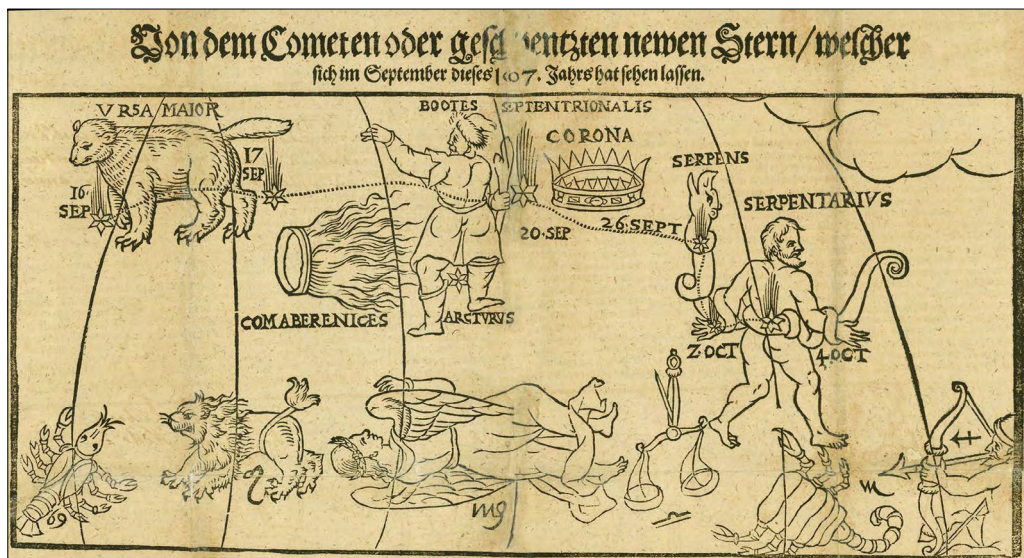 Von dem Cometen oder newen Stern/welcher
sich im September dieses Jahrs hat sehen lassen.
VRSA MAIOR
BOOTES SEPTENTRIONALIS
CORONA
SERPENS
16
SEP
17
SEP
SERPENTARIVS
20·SEP
26·SEPT
COMA BERENICES
ARCTVRVS
2·OCT
4·OCT
69